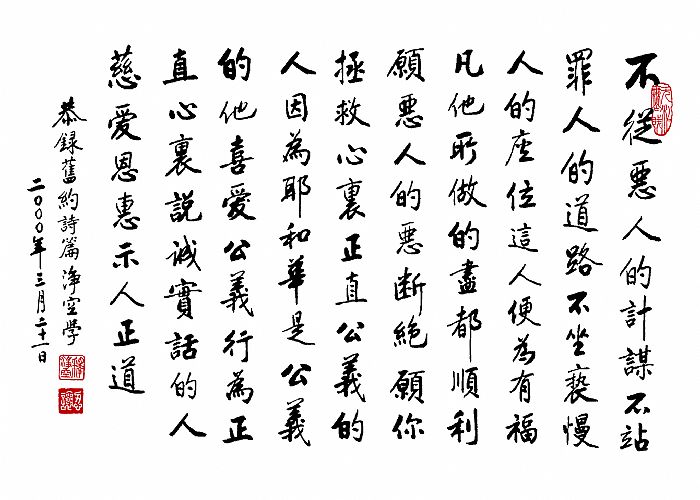 不從惡人的計謀不站
罪人的道路不坐褻慢
人的座位這人便為有福
凡他所做的盡都順利
願惡人的惡斷絕願你
拯救心裏正直公義的
人因為耶和華是公義
的他喜愛公義行為正
直心裏說誠實話的人
慈愛恩惠示人正道
恭錄舊約詩篇淨空學
二〇〇〇年三月二十一日